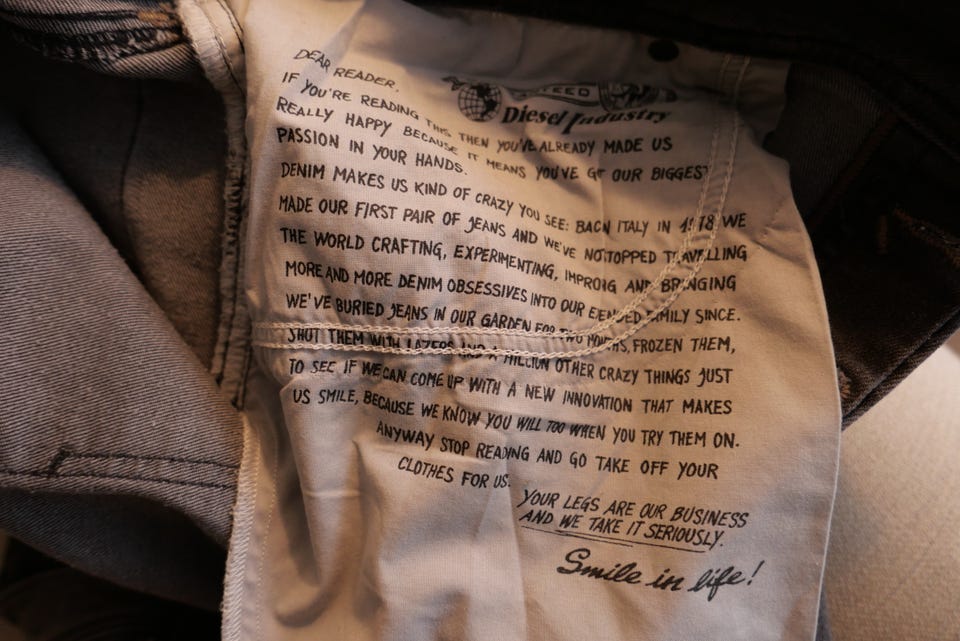 DEAR READER,
Diesel Industry
IF YOU'RE READING THIS THEN YOU'VE ALREADY MADE US
REALLY HAPPY BECAUSE IT MEANS YOU'VE GT OUR BIGGEST
PASSION IN YOUR HANDS.
DENIM MAKES US KIND OF CRAZY YOU SEE: BACN ITALY IN 1978 WE
MADE OUR FIRST PAIR OF JEANS AND WE'VE NOTOPPED TRAVELLING
THE WORLD CRAFTING, EXPERIMENTING, IMPROIG AND BRINGING
MORE AND MORE DENIM OBSESSIVES INTO OUR FAMILY SINCE.
WE'VE BURIED JEANS IN OUR GARDEN FOR TWO MONTHS, FROZEN THEM,
SHOT THEM WITH LAZERS AND A MILLION OTHER CRAZY THINGS JUST
TO SEE IF WE CAN COME UP WITH A NEW INNOVATION THAT MAKES
US SMILE, BECAUSE WE KNOW YOU WILL TOO WHEN YOU TRY THEM ON.
ANYWAY STOP READING AND GO TAKE OFF YOUR
CLOTHES FOR US.
YOUR LEGS ARE OUR BUSINESS
AND WE TAKE IT SERIOUSLY.
Smile in life!